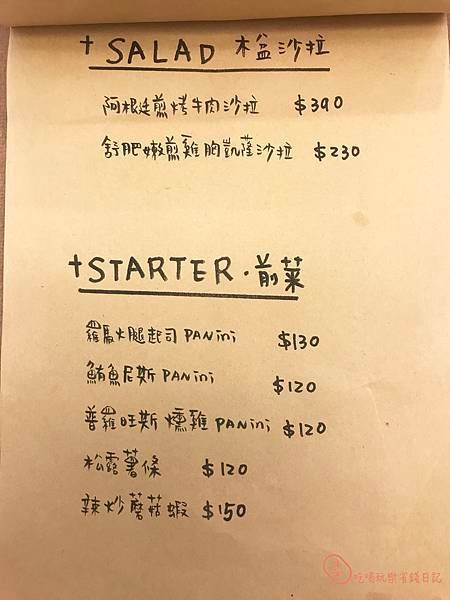 + SALAD 木盆沙拉
阿根廷煎烤牛肉沙拉 $390
舒肥嫩煎雞胸凱薩沙拉 $230
+ STARTER・前菜
羅馬火腿起司 PANini $130
鮪魚尼斯 PANini $120
普羅旺斯燻雞 PANini $120
松露薯條 $120
辣炒蘑菇蝦 $150
吃喝玩樂省錢日記